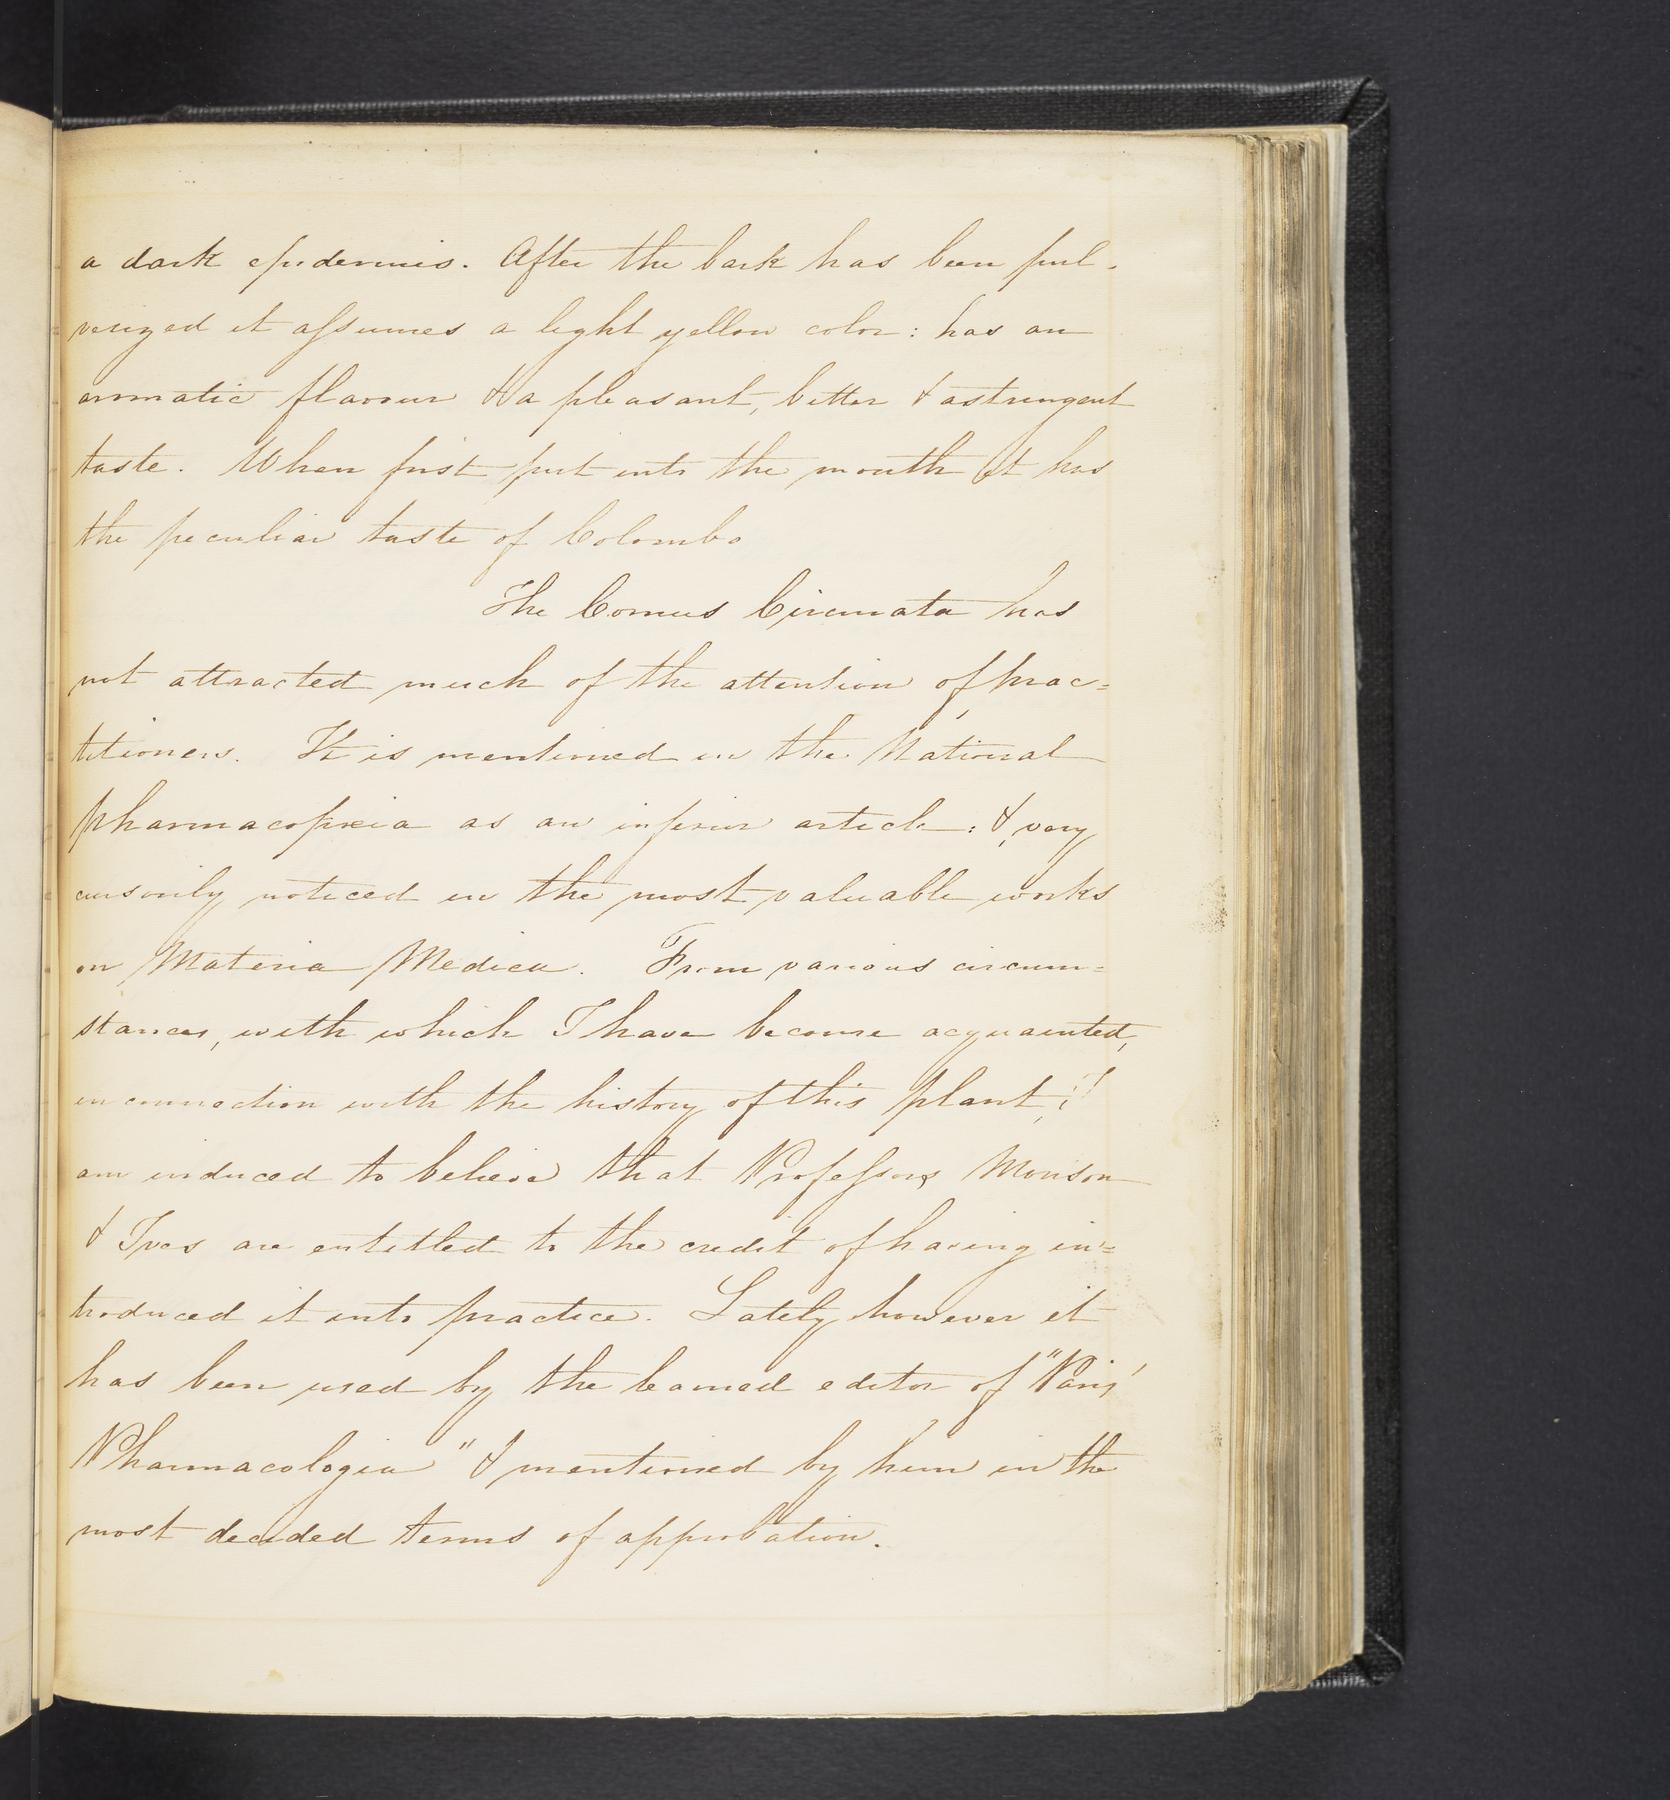 a dark epidermis. After the bark has been pul-
verized it assumes a light yellow color: has an
aromatic flavour & a pleasant, bitter & astringent
taste. When first put into the mouth it has
the peculiar taste of Colombo
The Cornus Circinata has
not attracted much of the attention of prac=
titioners. It is mentioned in the National
pharmacopœia as an inferior article: &, very
cursorily noticed in the most valuable works
on Materia Medica. From various circum=
stances, with which I have become acquainted,
in connection with the history of this plant, I
am induced to believe that Professors Monson
& Ives are entitled to the credit of having in=
troduced it into practice. Lately however it
has been used by the learned editor of "Paris'
Pharmacologia" & mentioned by him in the
most decided terms of approbation.